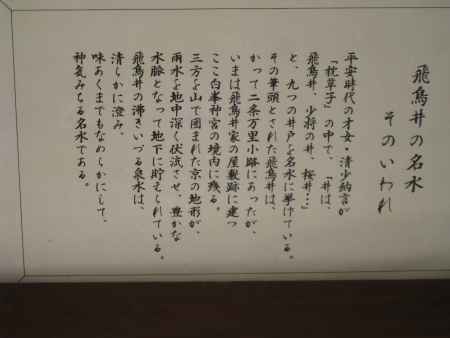 飛鳥井の名水
そのいわれ
平安時代の才女・清少納言が
「枕草子」の中で、「井は、
飛鳥井、少将の井、桜井…」
と、九つの井戸を名水に挙げている。
その筆頭とされた飛鳥井は、
かつて二条万里小路にあったが、
いまは飛鳥井家の屋敷跡に建つ
ここ白峯神宮の境内に残る。
三方を山で囲まれた京の地形が、
雨水を地中深く伏流させ、豊かな
水脈となって地下に貯えられている。
飛鳥井の沸きいづる泉水は、
清らかに澄み、
味あくまでもなめらかにして、
神気みちる名水である。